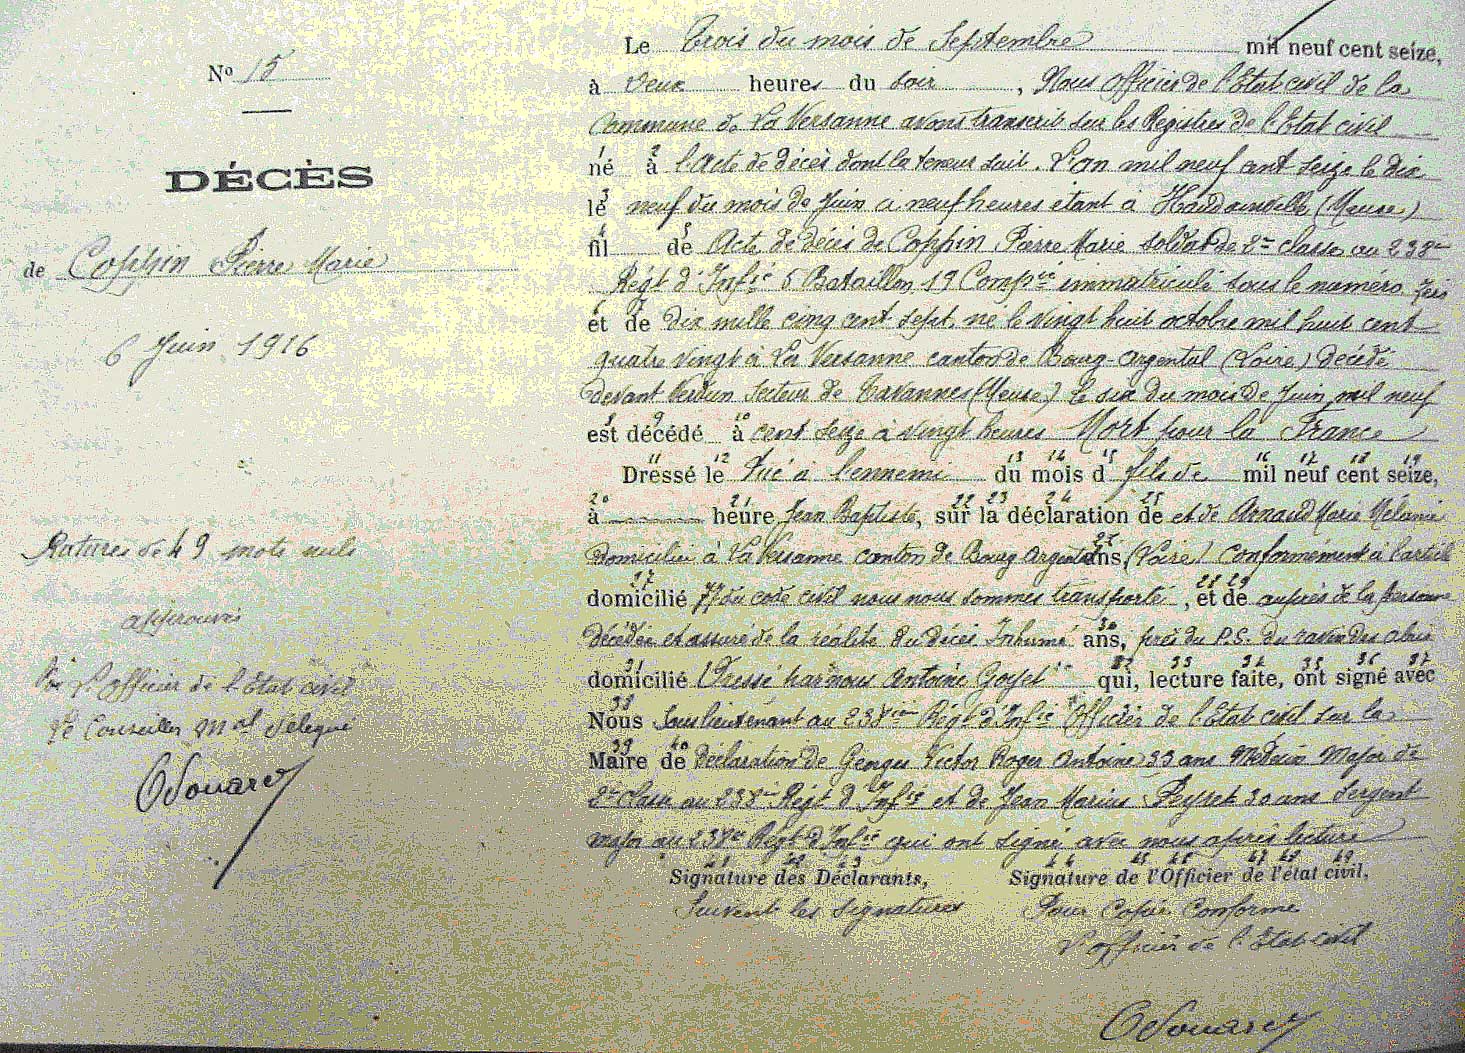 N° 15
DÉCÈS
de Coppin Pierre Marie
6 Juin 1916
Ratures de 49 mots nuls
approuvés
L'officier de l'Etat civil
Conseiller Mal délégué
Le Trois du mois de Septembre mil neuf cent seize,
à Deux heures du soir, Nous officier de l'Etat civil de la
Commune de La Versanne avons transcrit sur les Registres de l'Etat civil
1 2
né à l'acte de décès dont la teneur suit. L'an mil neuf cent seize le dix
3
le neuf du mois de Juin a neuf heures étant à Haudainville (Meuse)
4 5
fil de Acte de décès de Coppin Pierre Marie soldat de 2me classe au 238me
Régt d'Infie 5 Bataillon 19 Compie immatriculé sous le numéro
6 7
et de dix mille cinq cent sept, né le vingt huit octobre mil huit cent
quatre vingt à La Versanne canton de Bourg-Argental (Loire) décédé
devant Verdun secteur de Tavannes (Meuse) le six du mois de Juin mil neuf
8 9 10
est décédé à cent seize à vingt heures Mort pour la France
11 12 13 14 15 16 17 18 19
Dressé le Tué à l'ennemi du mois d fils de mil neuf cent seize,
20 21 22 23 24 25
à heure Jean Baptiste, sur la déclaration de et de Arnaud Marie Mélanie
domiciliés à La Versanne canton de Bourg Argental ans, (Loire) Conformément à l'article
27 28 29
domicilié 77 du code civil nous nous sommes transporté, et de auprès de la personne
30
décédée et assuré de la réalité du décès Inhumé ans, près du P.S. du ravin des
31 32 33 34 35 36 37
domicilié Dressé par nous Antoine Goyet qui, lecture faite, ont signé avec
38
Nous Sous lieutenant au 238ième Régt d'Infie Officier de l'Etat civil sur la
39 40
Maire de Déclaration de Georges Victor Roger Antoine 33 ans Médecin Major de
2e classe au 238me Régt d'Infie et de Jean Marius Peyret 30 ans Sergent
major au 238me Régt d'Infie qui ont signé avec nous après lecture
41 42 43 44 45 46 47 48 49
Signature des Déclarants, Signature de l'Officier de l'état civil,
Suivent les signatures Pour Copie Conforme
L'officier de l'Etat civil